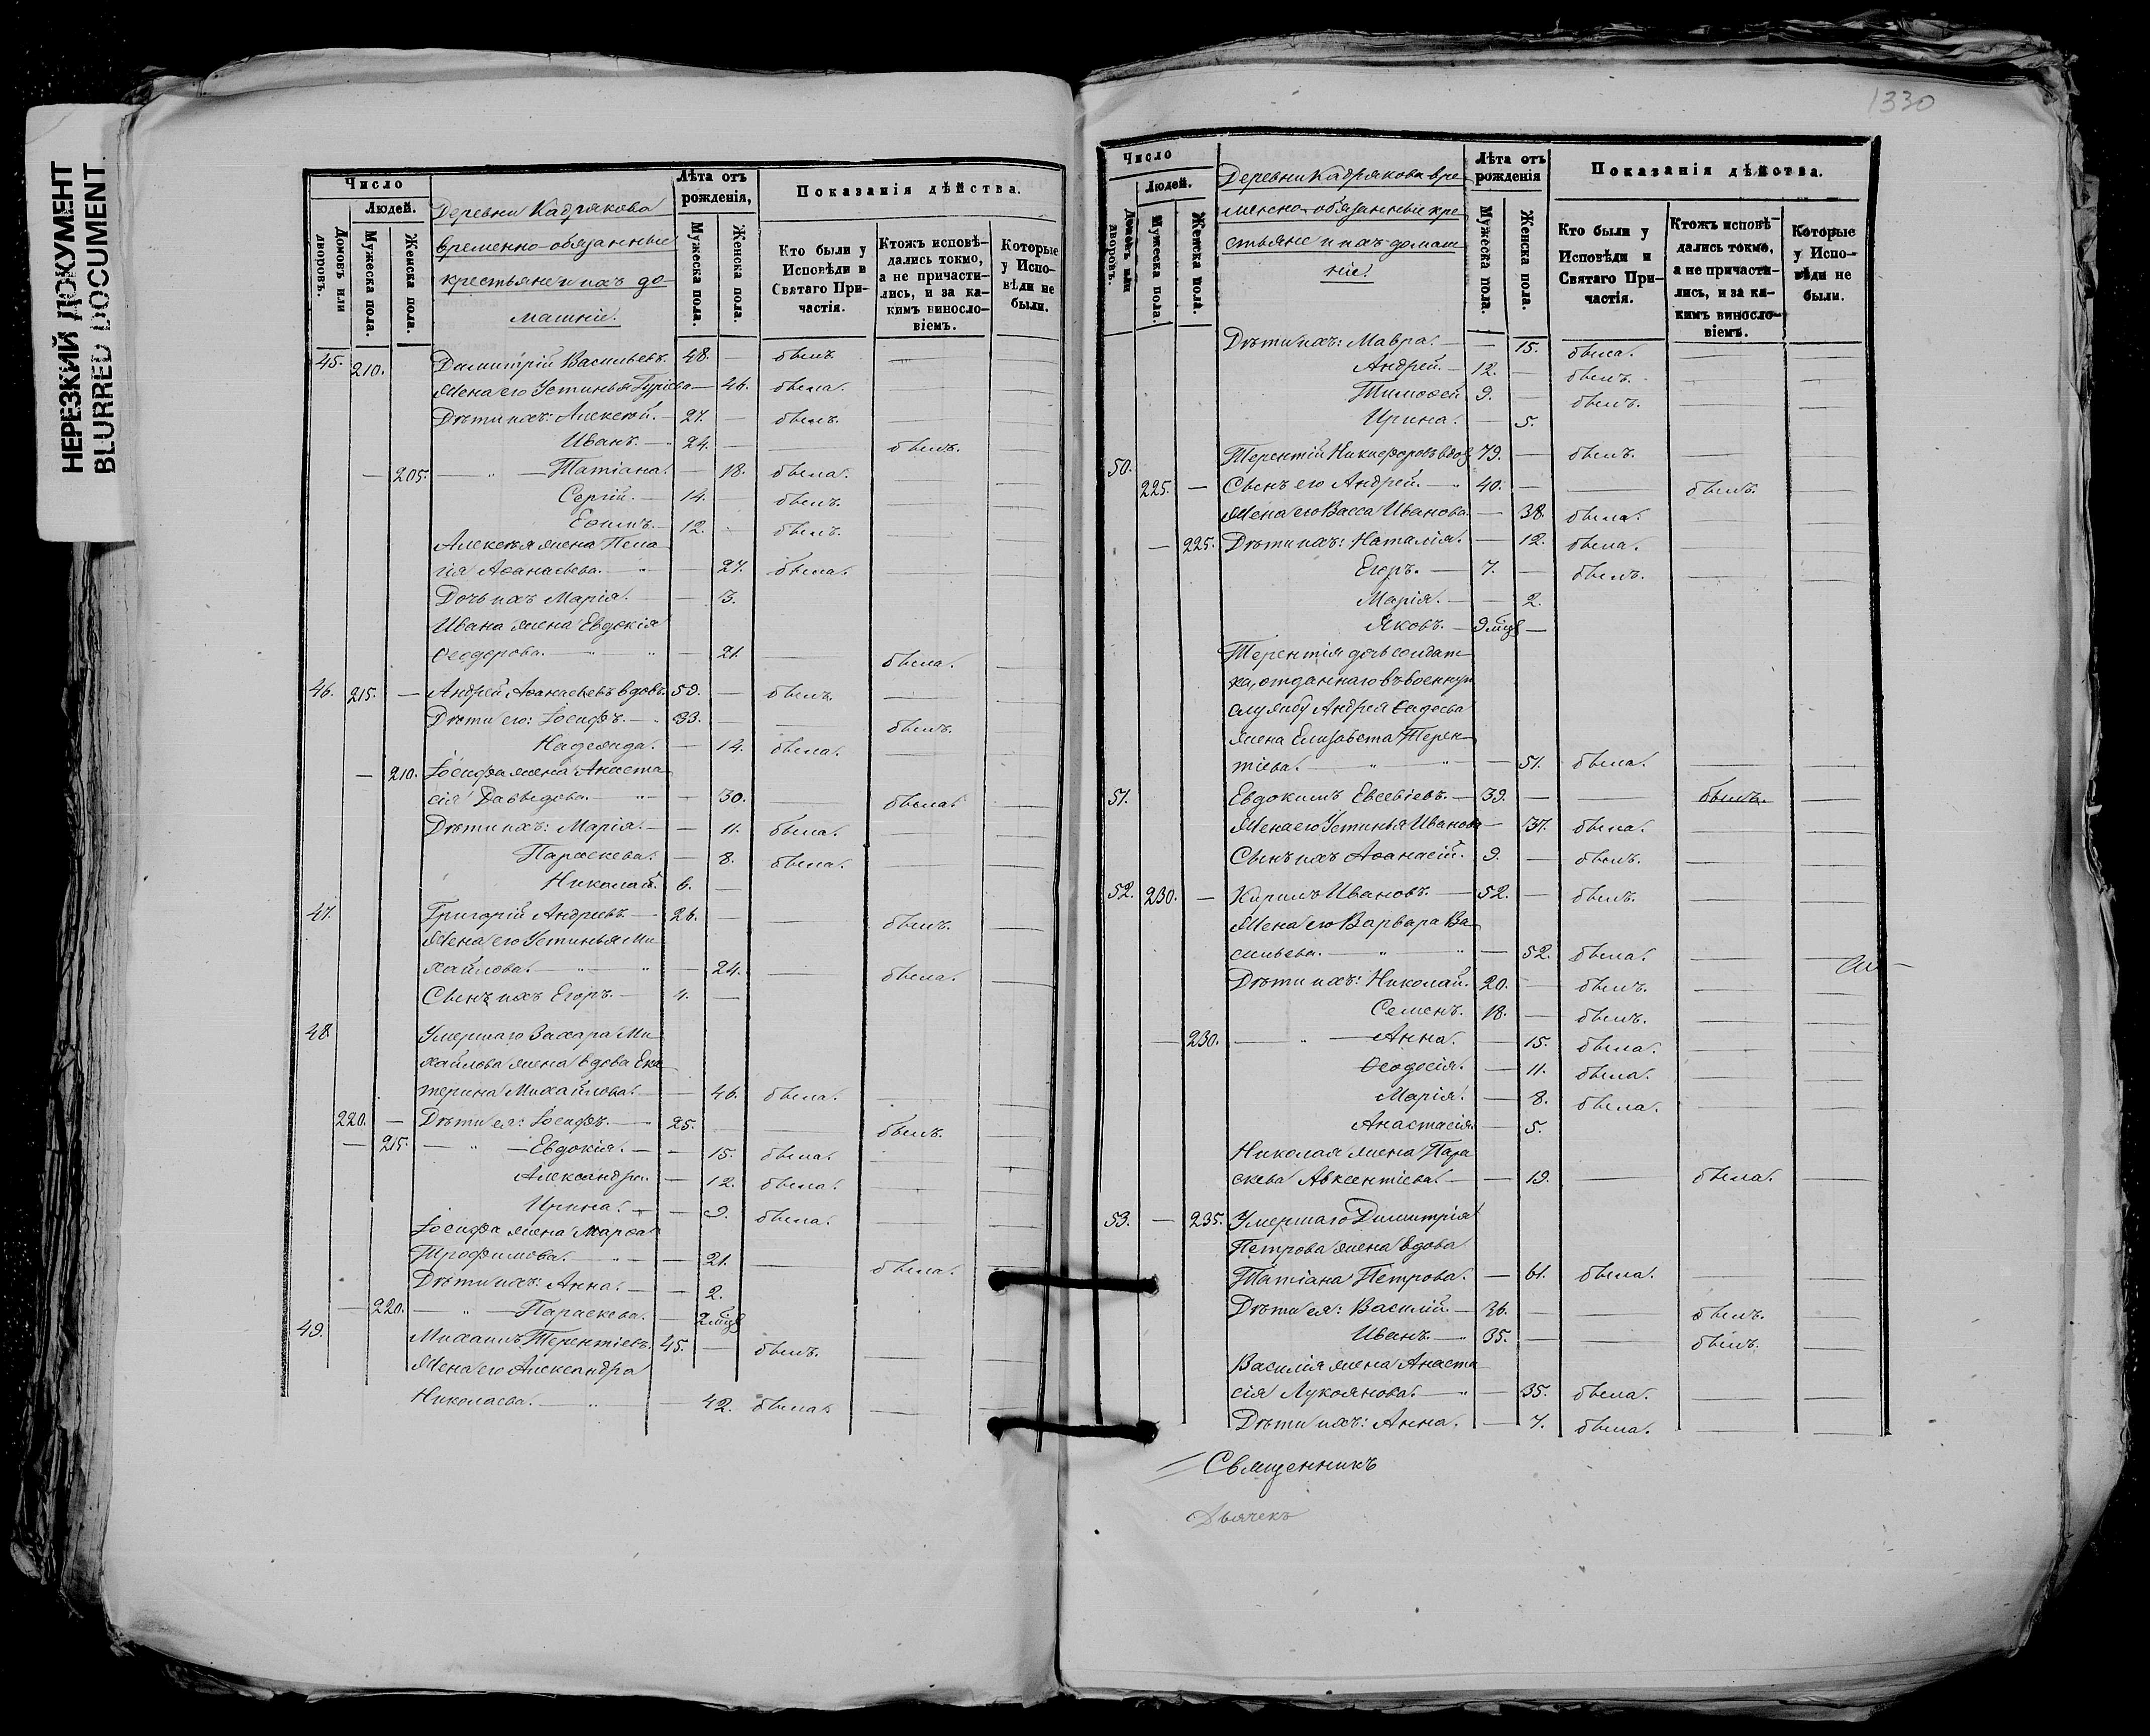 НЕРЕЗКИЙ ДОКУМЕНТ
BLURRED DOCUMENT
Число
Людей.
Домовъ или дворовъ.
Мужеска пола.
Женска пола.
Деревни Кадрякова
временно-обязанные
крестьяне и ихъ до-
машніе.
Лѣта отъ рожденія,
Мужеска пола.
Женска пола.
Показанія дѣйства.
Кто были у Исповѣди и Святаго При-частія.
Ктожъ исповѣ-дались токмо, а не причасти-лись, и за ка-кимъ винословіемъ.
Которые у Испо-вѣди не были.
45. 210. Димитрій Васильевъ. 48. — былъ —
Жена его Устинья Гурьева — 46. была. —
Дѣти ихъ: Алексѣй. — 27. — былъ. —
Иванъ. — 24. — былъ.
— 205. — " — Татіана. — 18. была. — —
Сергій. — 14. — былъ. — —
Ефимъ. — 12. — былъ. — —
Алексѣя жена Пела
гія Аѳанасьева. — " — 27. была. — —
Дочь ихъ Марія. — — 3.
Ивана жена Евдокія
Ѳеодорова. — " — " — 21. — была. —
46. 215. — Андрей Аѳанасьевъ вдовъ. 59. — былъ. —
Дѣти его: Іосифъ. — " 33. — — былъ.
Надежда. — 14. была. — —
— 210. Іосифа жена Анаста
сія Давыдова. — " — — 30. — была. —
Дѣти ихъ: Марія. — — 11. была. — —
Параскева. — 8. была. — —
Николай. 6. —
47. Григорій Андреевъ. — 26. — — былъ. —
Жена его Устинья Ми
хайлова. — " — " — 24. — была. —
Сынъ ихъ Егоръ. — 4. —
48. Умершаго Захара Ми
хайлова жена вдова Ека
терина Михайлова. — — 46. была. —
220. — Дѣти ея: Іосифъ. — 25. — — былъ. —
— 215. — " — Евдокія. — — 15. была. — —
Александра. — 12. была. — —
Ирина. — — 9. была. — —
Іосифа жена Марѳа
Трофимова. — " — — 21. — была. —
Дѣти ихъ: Анна. — — 2.
— 220. — " — Параскева. — 2 мѣс
49. Михаилъ Терентіевъ. 45. — былъ. — —
Жена его Александра
Николаева. — " — 42. была. — —
1330
Число
Людей.
Домовъ или дворовъ.
Мужеска пола.
Женска пола.
Деревни Кадрякова вре
менно-обязанные кре
стьяне и ихъ домаш
ніе.
Лѣта отъ рожденія
Мужеска пола.
Женска пола.
Показанія дѣйства.
Кто были у Исповѣди и Святаго При-частія.
Ктожъ исповѣ-дались токмо, а не причасти-лись, и за ка-кимъ винословіемъ.
Которые у Испо-вѣди не были.
Дѣти ихъ: Мавра. — — 15. была. — —
Андрей. — 12. — былъ. — —
Тимоѳей 9. — былъ. — —
Ирина. — 5.
50. Терентій Никифоровъ вдов 79. — былъ. — —
225. — Сынъ его Андрей. — " 40. — — былъ. —
Жена его Васса Иванова. — 38. была. — —
— 225. Дѣти ихъ: Наталія. — 12. была. — —
Егоръ. — 7. — былъ. — —
Марія. — — 2.
Яковъ. — 9 мѣс —
Терентія дочь солдат
ка, отданнаго въ военную
службу Андрея Ѳадѣева
жена Елизавета Терен
тіева. — " — " — 51. была. — —
51. Евдокимъ Евсевіевъ. — 39. — — былъ. —
Жена его Устинья Иванова — 37. была. — —
Сынъ ихъ Аѳанасій. 9. — былъ. — —
52. 230. — Кирилъ Ивановъ. — 52. — былъ. — —
Жена его Варвара Ва
сильева. — " — " — 52. была. — —
Дѣти ихъ: Николай. 20. — былъ. — —
Семенъ. 18. — былъ. — —
— 230. — " — Анна. — 15. была. — —
Ѳеодосія. — 11. была. — —
Марія. — 8. была. — —
Анастасія. — 5.
Николая жена Пара
скева Авксентіева. — — 19. — была. —
53. — 235. Умершаго Димитрія
Петрова жена вдова
Татіана Петрова. — 61. была. — —
Дѣти ея: Василій. — 36. — — былъ. —
Иванъ. — 35. — — былъ. —
Василія жена Анаста
сія Лукоянова. — " — 35. была. — —
Дѣти ихъ: Анна. — 7. была. — —
Священникъ
Дьячекъ